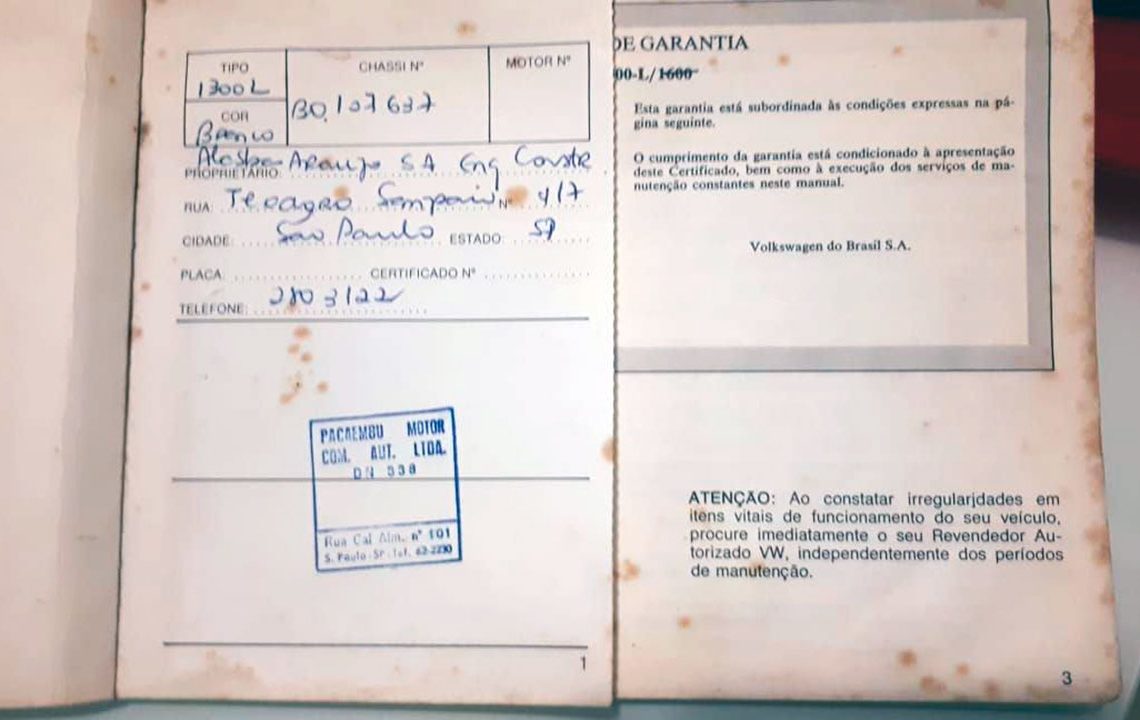 TIPO
1300L
CHASSI Nº
BO,107637
MOTOR Nº
COR
Branco
PROPRIETÁRIO: Araujo SA Eng Constr
RUA: Nº 417
CIDADE: São Paulo ESTADO: SP
PLACA: CERTIFICADO Nº
TELEFONE: 2803122
PACAEMBU MOTOR
COM. AUT. LTDA.
DN 338
Rua Cal Alm. nº 101
S. Paulo-SP-Tel. 62-2230
1
DE GARANTIA
00-L/1600
Esta garantia está subordinada às condições expressas na pá-
gina seguinte.
O cumprimento da garantia está condicionado à apresentação
deste Certificado, bem como à execução dos serviços de ma-
nutenção constantes neste manual.
Volkswagen do Brasil S.A.
ATENÇÃO: Ao constatar irregularidades em
itens vitais de funcionamento do seu veículo,
procure imediatamente o seu Revendedor Au-
torizado VW, independentemente dos períodos
de manutenção.
3